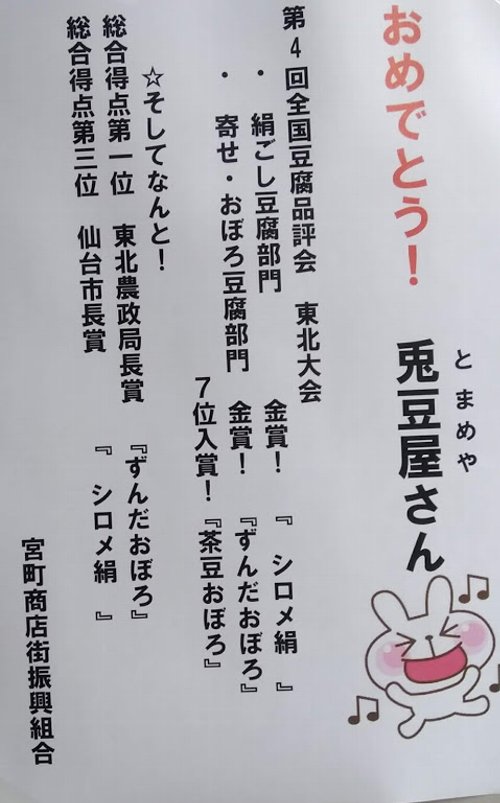 おめでとう！
とまめや
兎豆屋さん
第4回全国豆腐品評会　東北大会
・　絹ごし豆腐部門　金賞！　『　シロメ絹　』
・　寄せ・おぼろ豆腐部門　金賞！　『ずんだおぼろ』
7位入賞！『茶豆おぼろ』
☆そしてなんと！
総合得点第一位　東北農政局長賞　『ずんだおぼろ』
総合得点第三位　仙台市長賞　『　シロメ絹　』
宮町商店街振興組合